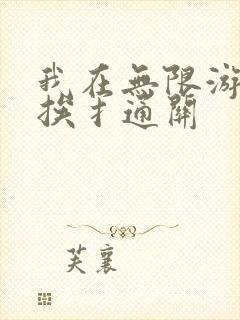 我在無限游
挨扌通關
芙襄